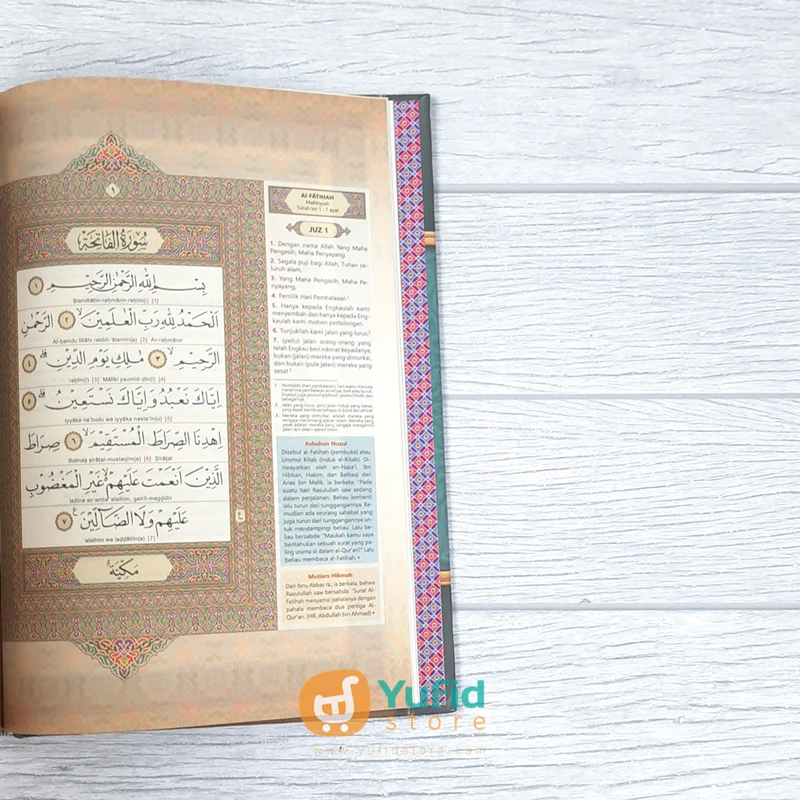 ١
سُورَةُ الْفَاتِحَةِ
بِسْمِ اللّٰهِ الرَّحْمٰنِ الرَّحِيْمِ ١
Bismillāhir-raḥmānir-raḥīm(i) [1]
اَلْحَمْدُ لِلّٰهِ رَبِّ الْعٰلَمِيْنَۙ ٢ الرَّحْمٰنِ
Al-ḥamdu lillāhi rabbil-'ālamīn(a) [2] Ar-raḥmānir-
الرَّحِيْمِۙ ٣ مٰلِكِ يَوْمِ الدِّيْنِۗ ٤
raḥīm(i) [3] Māliki yaumid-dīn(i) [4]
اِيَّاكَ نَعْبُدُ وَاِيَّاكَ نَسْتَعِيْنُۗ ٥
Iyyāka na'budu wa iyyāka nasta'īn(u) [5]
اِهْدِنَا الصِّرَاطَ الْمُسْتَقِيْمَۙ ٦ صِرَاطَ
Ihdinaṣ ṣirāṭal-mustaqīm(a) [6] Ṣirāṭal
الَّذِيْنَ اَنْعَمْتَ عَلَيْهِمْ ەۙ غَيْرِ الْمَغْضُوْبِ
lażīna an'amta 'alaihim, gairil-magḍūbi
عَلَيْهِمْ وَلَا الضَّاۤلِّيْنَ ٧
'alaihim wa laḍḍāllīn(a) [7]
مَكِّيَّة
Al-FĀTIḤAH
Makkiyyah
Surah ke-1 : 7 ayat
JUZ 1
1. Dengan nama Allah Yang Maha
Pengasih, Maha Penyayang.
2. Segala puji bagi Allah, Tuhan se-
luruh alam,
3. Yang Maha Pengasih, Maha Pe-
nyayang,
4. Pemilik Hari Pembalasan.¹
5. Hanya kepada Engkaulah kami
menyembah dan hanya kepada Eng-
kaulah kami mohon pertolongan.
6. Tunjukilah kami jalan yang lurus,²
7. (yaitu) jalan orang-orang yang
telah Engkau beri nikmat kepadanya;
bukan (jalan) mereka yang dimurkai,
dan bukan (pula jalan) mereka yang
sesat.³
Asbabun Nuzul
Disebut al-Fatihah (pembuka) atau
Ummul Kitab (induk al-Kitab). Di-
riwayatkan oleh an-Nasa'i, Ibn
Hibban, Hakim, dan Baihaqi dari
Anas bin Malik, ia berkata: "Pada
suatu hari Rasulullah saw sedang
dalam perjalanan. Beliau berhenti
lalu turun dari tunggangannya. Ke-
mudian ada seorang sahabat yang
juga turun dari tunggangannya un-
tuk mendampingi beliau. Lalu be-
liau bersabda: "Maukah kamu saya
beritahukan sebuah surat yang pa-
ling utama di dalam al-Qur'an?" Lalu
beliau membaca al-Fatihah. •
Mutiara Hikmah
Dari Ibnu Abbas ra., ia berkata, bahwa
Rasulullah saw bersabda: "Surat Al-
Fatihah menyamai pahalanya dengan
pahala membaca dua pertiga Al-
Qur'an. (HR. Abdullah bin Ahmad) •
Yufid
store
www.yufidstore.com